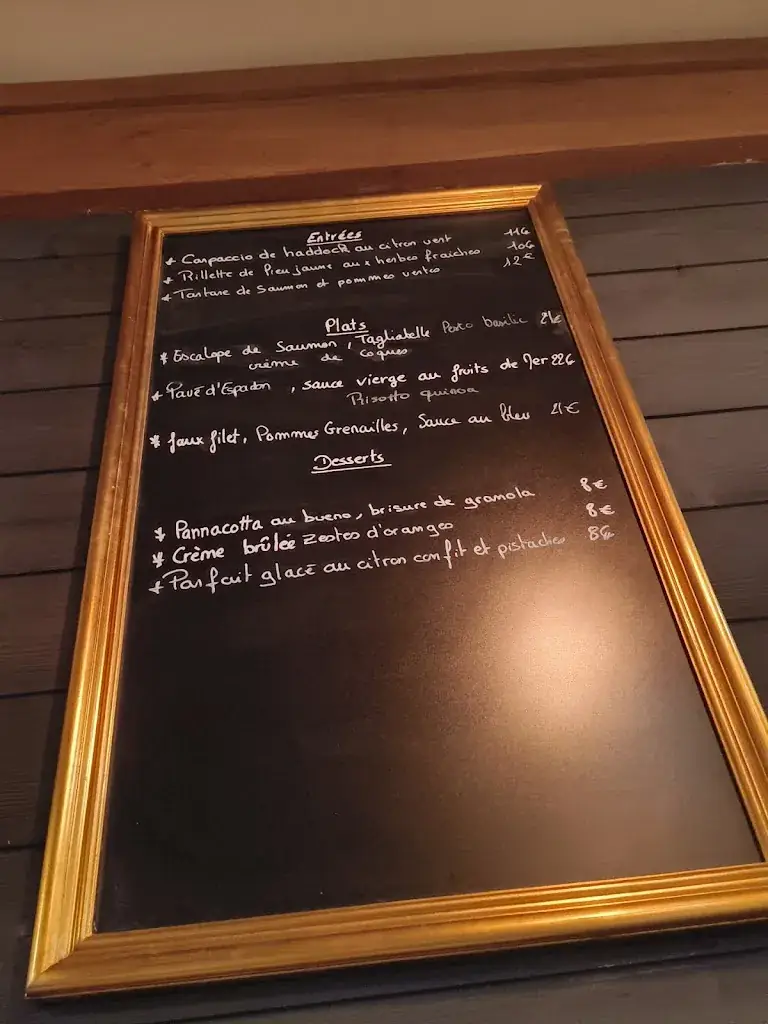 Entrées
* Carpaccio de haddock au citron vert 11€
* Rillette de lieu jaune aux herbes fraiches 10€
* Tartare de Saumon et pommes vertes 12€
Plats
* Escalope de Saumon, Tagliatelle Pesto basilic 21€
crème de coques
* Pavé d'Espadon, sauce vierge au fruits de Mer 22€
Risotto quinoa
* faux filet, Pommes Grenailles, Sauce au bleu 21€
Desserts
* Pannacotta au bueno, brisure de granola 8€
* Crème brûlée Zestes d'oranges 8€
* Parfait glacé au citron confit et pistaches 8€